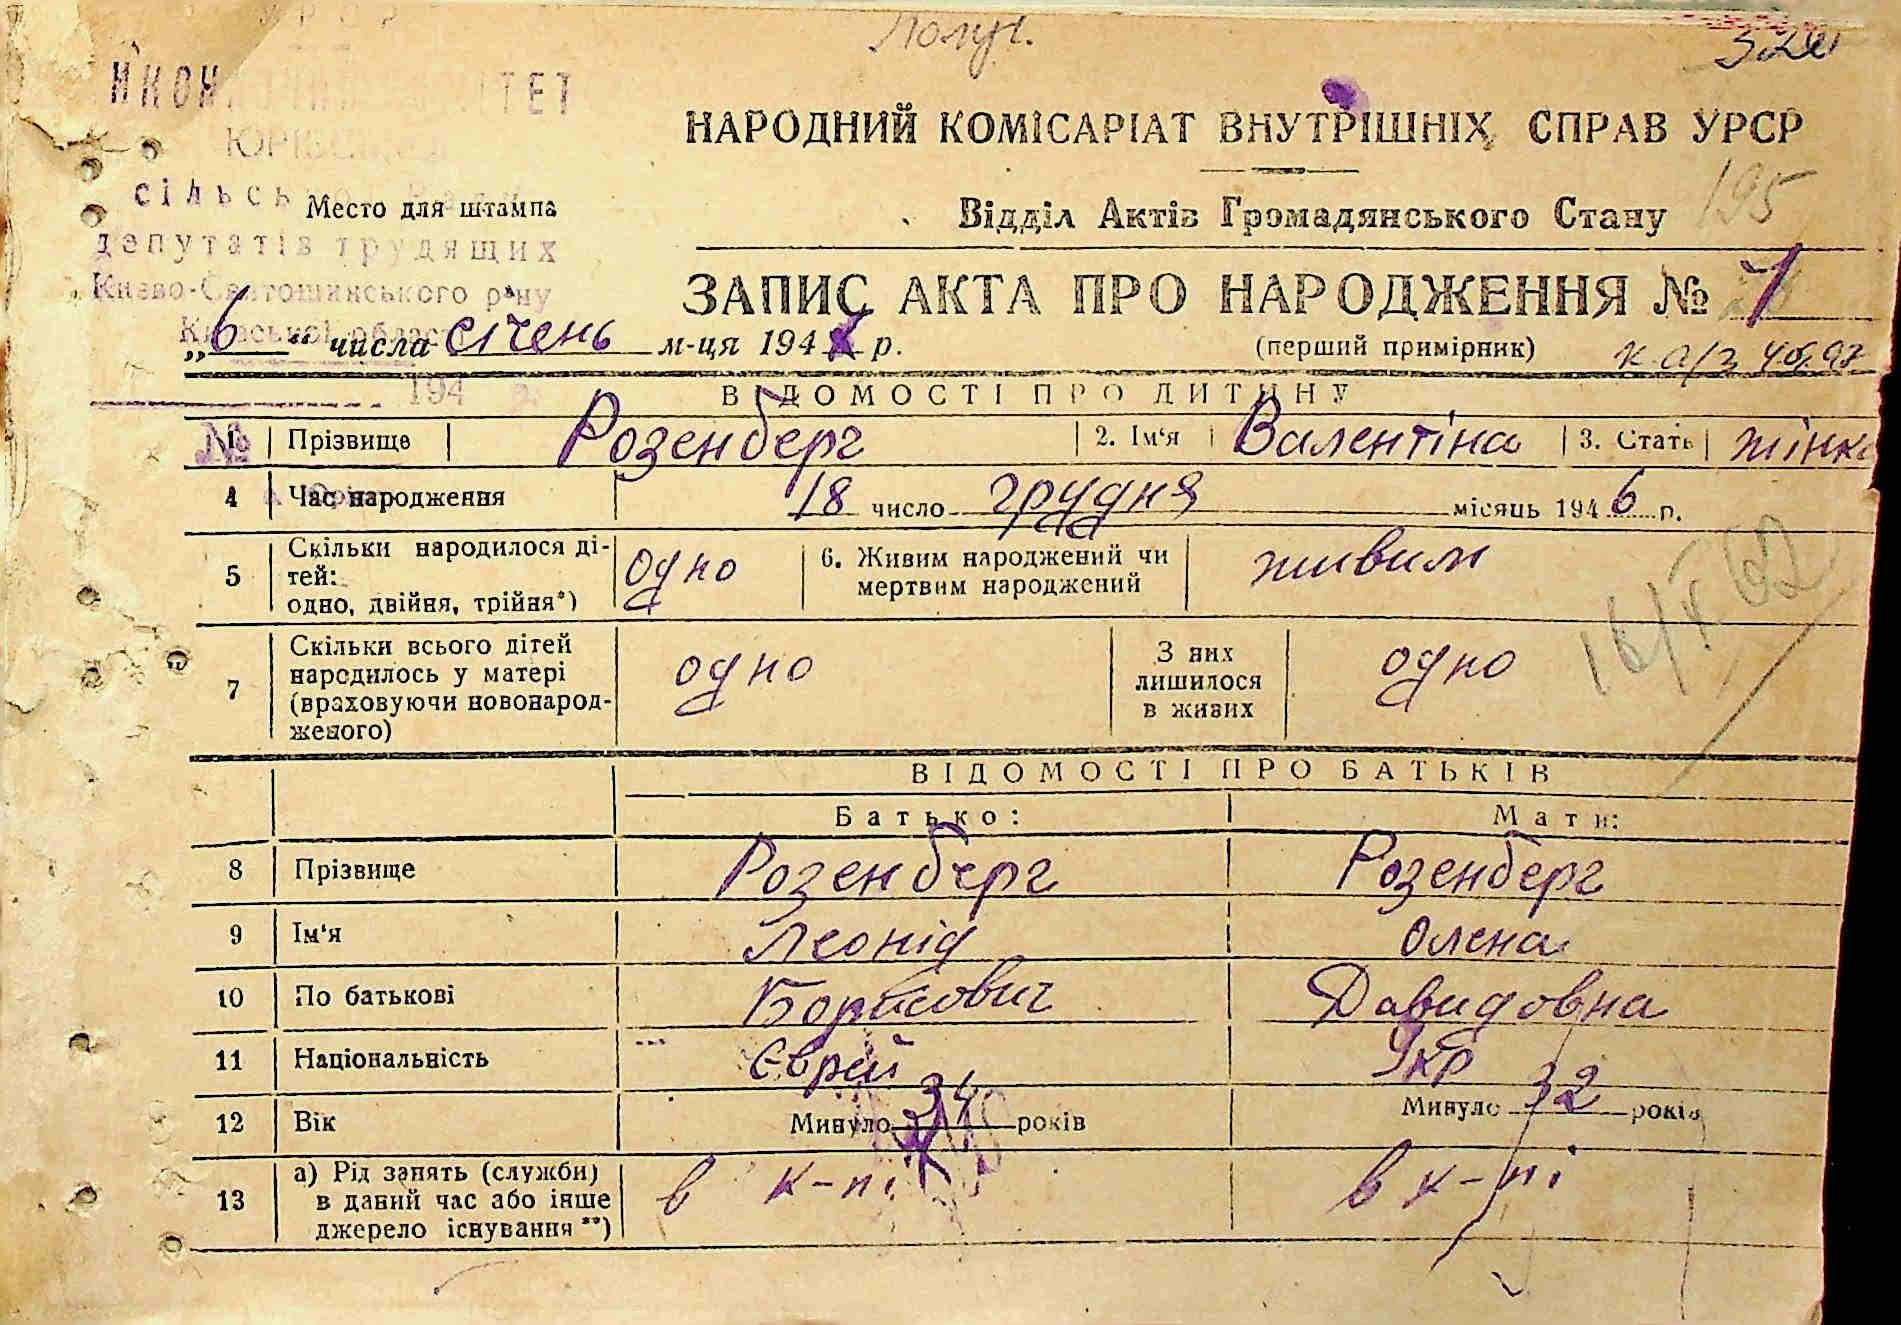 Получ.
НАРОДНИЙ КОМІСАРІАТ ВНУТРІШНІХ СПРАВ УРСР
195
Место для штампа
депутатів трудящих
Києво-Святошинського р-ну
Київської област
194
Відділ Актів Громадянського Стану
ЗАПИС АКТА ПРО НАРОДЖЕННЯ № 1
„6“ числа січень м-ця 194 р.
(перший примірник)
ВІДОМОСТІ ПРО ДИТИНУ
№ Прізвище Розенберг 2. Ім‘я Валентіна 3. Стать жінк
4 Час народження 18 число грудня місяць 1946 р.
5 Скільки народилося ді-
тей:
одно, двійня, трійня*) одно 6. Живим народжений чи
мертвим народжений живим
16/V 62
7 Скільки всього дітей
народилось у матері
(враховуючи новонарод-
женого) одно З них
лишилося
в живих одно
ВІДОМОСТІ ПРО БАТЬКІВ
Батько: Мати:
8 Прізвище Розенберг Розенберг
9 Ім‘я Леонід Олена
10 По батькові Борисович Давидовна
11 Національність Єврей Укр
12 Вік Минуло 34 років Минуло 32 років
13 а) Рід занять (служби)
в даний час або інше
джерело існування **) в к-пі в к-пі